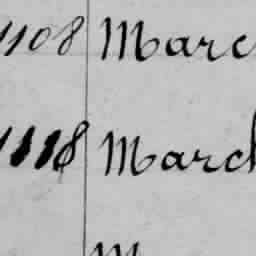 1108 Marc
1118 March
M